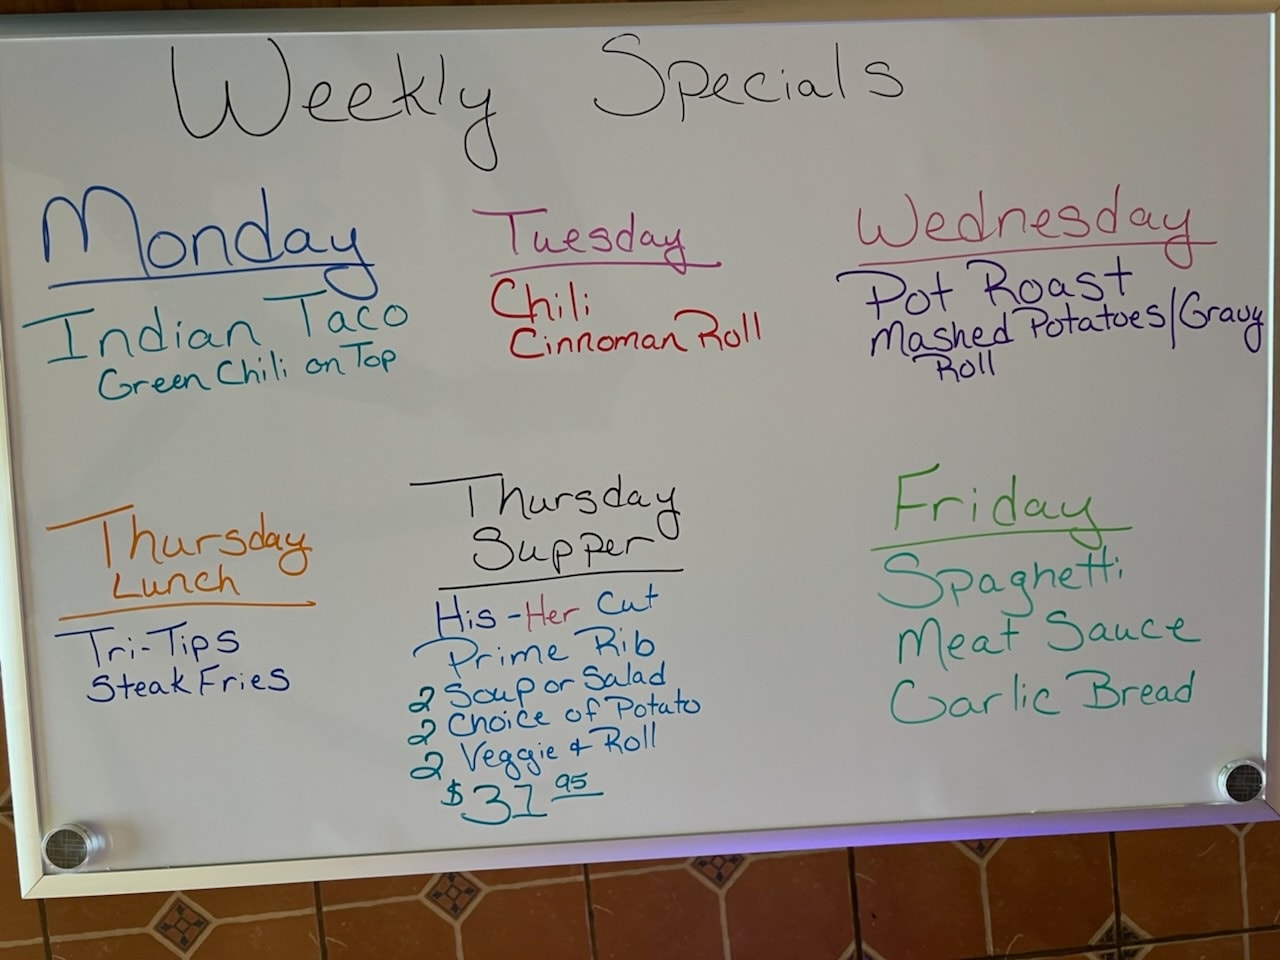 Weekly Specials
Monday
Indian Taco
Green Chili on Top
Tuesday
Chili
Cinnoman Roll
Wednesday
Pot Roast
Mashed Potatoes/Gravy
Roll
Thursday
Lunch
Tri-Tips
Steak Fries
Thursday
Supper
His-Her Cut
Prime Rib
2 Soup or Salad
2 Choice of Potato
2 Veggie & Roll
$31 95
Friday
Spaghetti
Meat Sauce
Garlic Bread